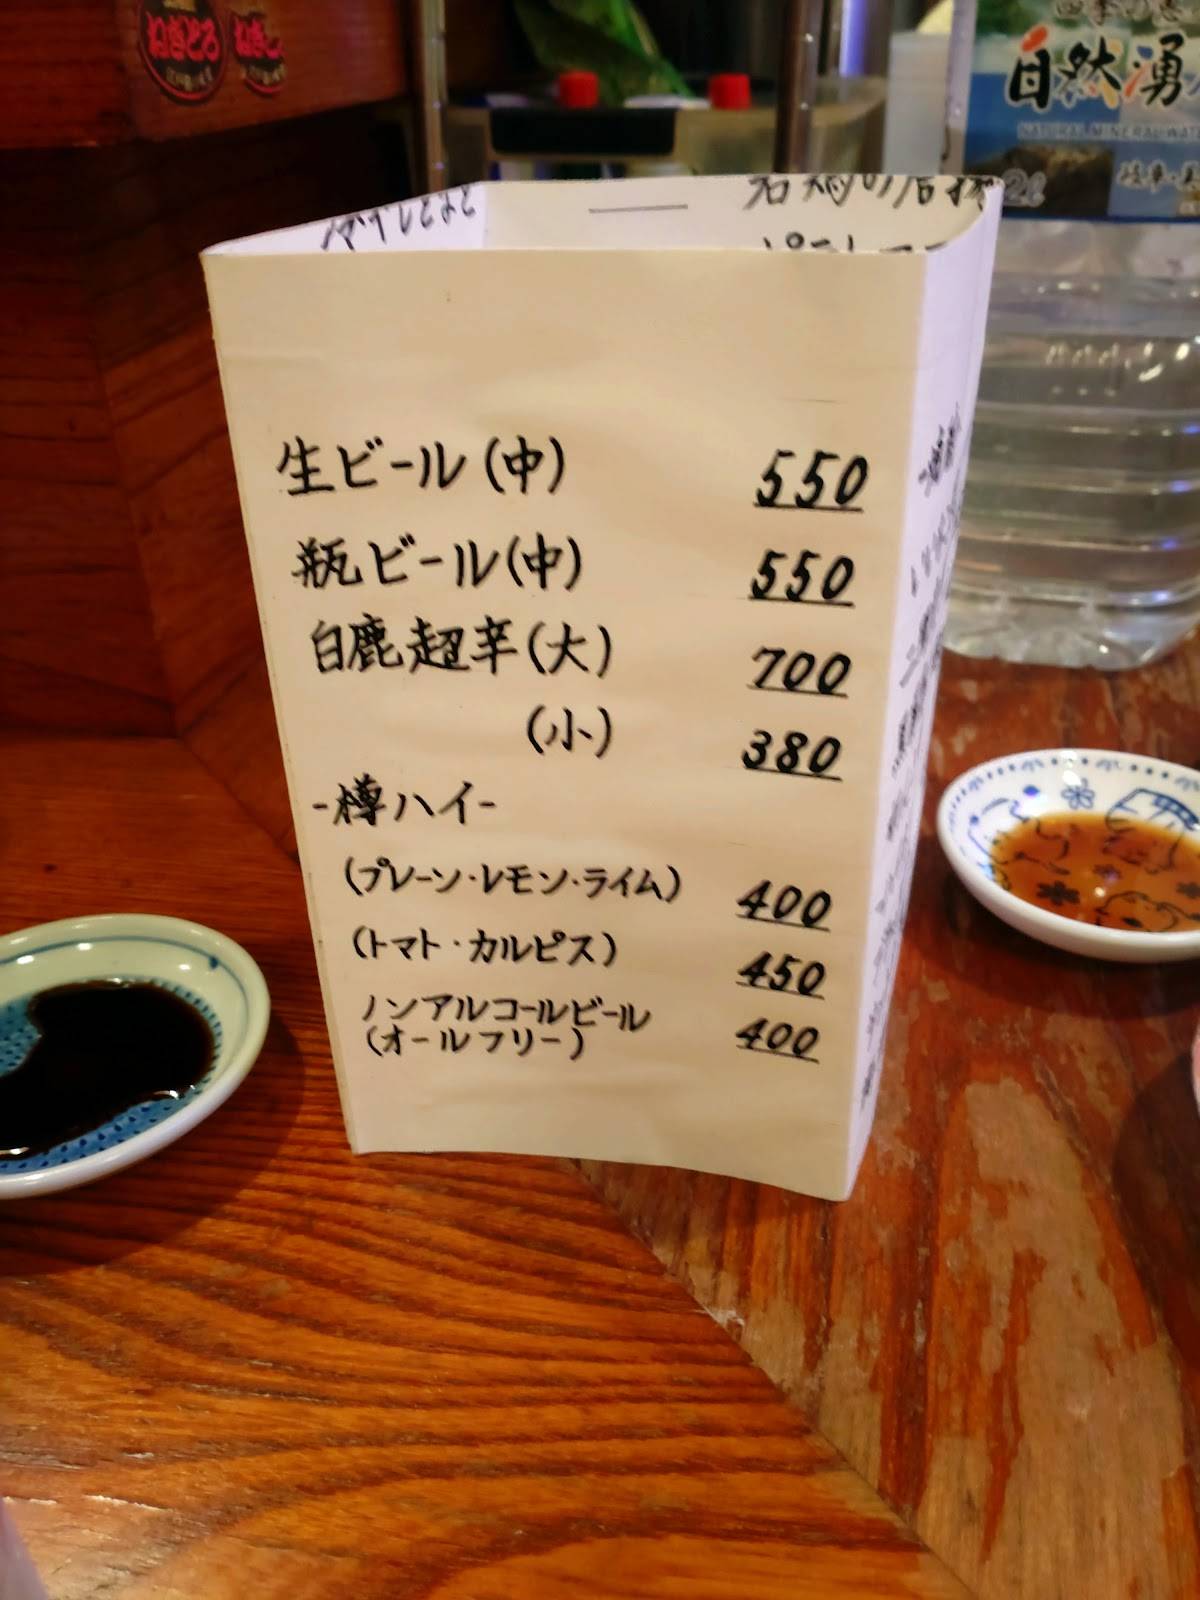 ねぎとろ
自然湧
NATURAL MINERAL WAT
2ℓ
生ビール(中) 550
瓶ビール(中) 550
白鹿超辛(大) 700
(小) 380
-樽ハイ-
(プレーン・レモン・ライム) 400
(トマト・カルピス) 450
ノンアルコールビール
(オールフリー) 400